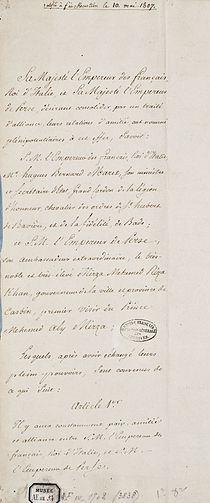 à Finkenstein le 10. mai 1807.
Sa Majesté l'Empereur des français,
Roi d'Italie et Sa Majesté l'Empereur
de Perse, désirant consolider par un traité
d'alliance, leurs relations d'amitié, ont nommé
plénipotentiaires à cet effet, Savoir:
S. M. l'Empereur des français, Roi d'Italie,
Mr. Hugues Bernard Maret, son ministre
et Secrétaire d'Etat, grand Cordon de la légion
d'honneur, chevalier des ordres de St. hubert
de Bavière, et de la fidélité, de Bade;
et S. M. l'Empereur de Perse,
son Ambassadeur extraordinaire, le très-
noble et très élevé Mirza Mohamed Riza
Khan, gouverneur de la ville et province de
Casbin, premier Visir du Prince
Mohamed Aly Mirza;
Lesquels, après avoir échangé leurs
pleins-pouvoirs, sont convenus de
ce qui suit:
Article 1er
Il y aura constamment paix, amitié
et alliance entre S. M. l'Empereur des
français, Roi d'Italie, et S. M.
l'Empereur de Perse.
MUSÉE
AE III